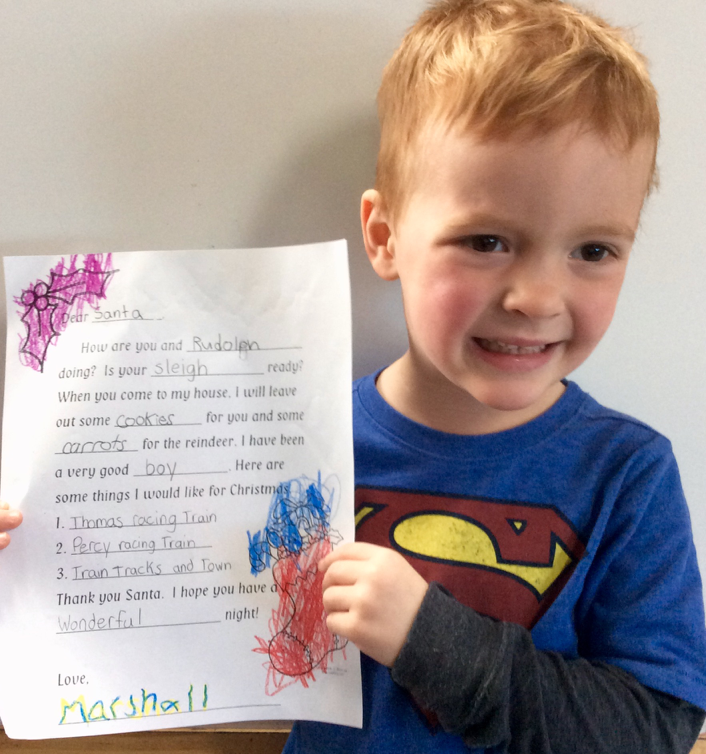 Dear Santa.
How are you and Rudolph
doing? Is your sleigh ready?
When you come to my house, I will leave
out some cookies for you and some
carrots for the reindeer. I have been
a very good boy. Here are
some things I would like for Christmas
1. Thomas racing Train
2. Percy racing Train
3. Train Tracks and Town
Thank you Santa. I hope you have a
Wonderful night!
Love,
Marshall